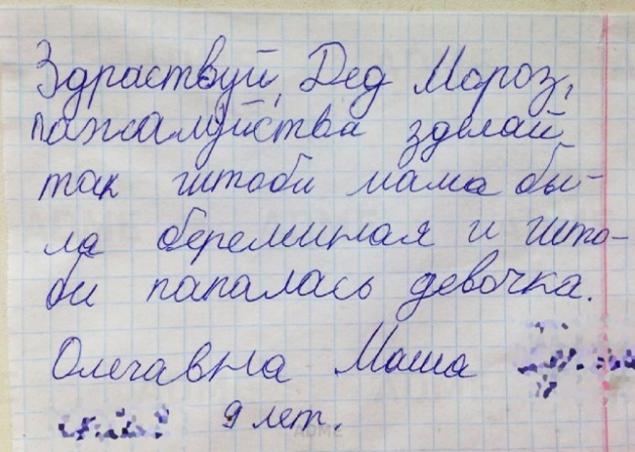 Здраствуй, Дед Мороз,
пажалуйства зделай
так штоби мама бы-
ла береминая и што-
би папалась девочка.
Олегавна Маша
9 лет.
ADME